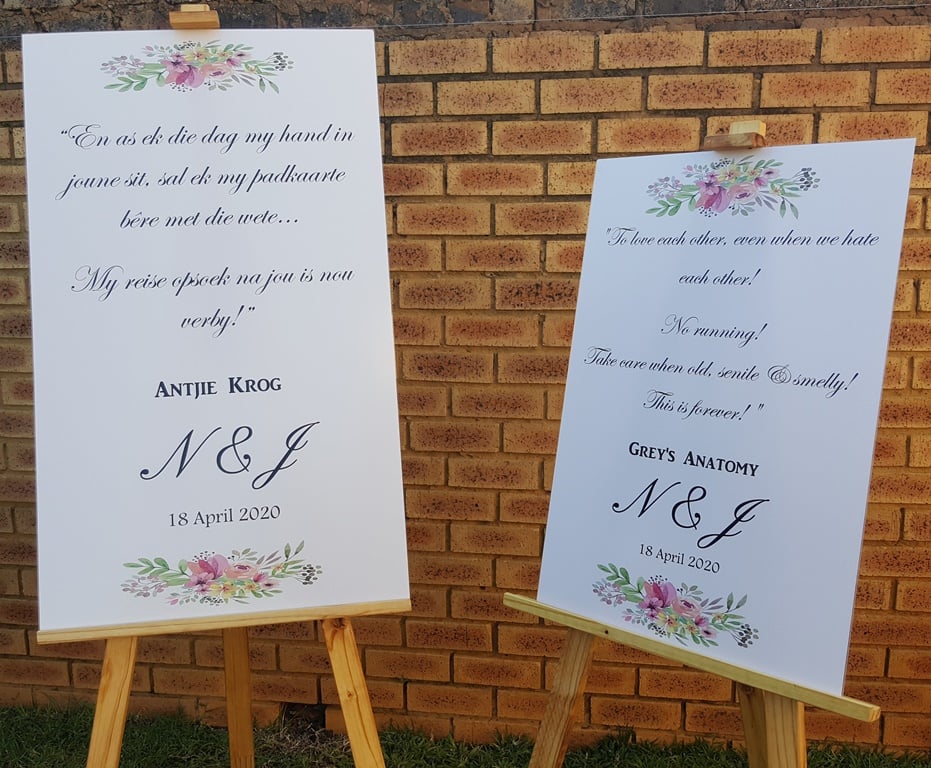 “En as ek die dag my hand in
joune sit, sal ek my padkaarte
bêre met die wete...
My reise opsoek na jou is nou
verby!”
Antjie Krog
N & J
18 April 2020
"To love each other, even when we hate
each other!
No running!
Take care when old, senile & smelly!
This is forever! "
Grey's Anatomy
N & J
18 April 2020